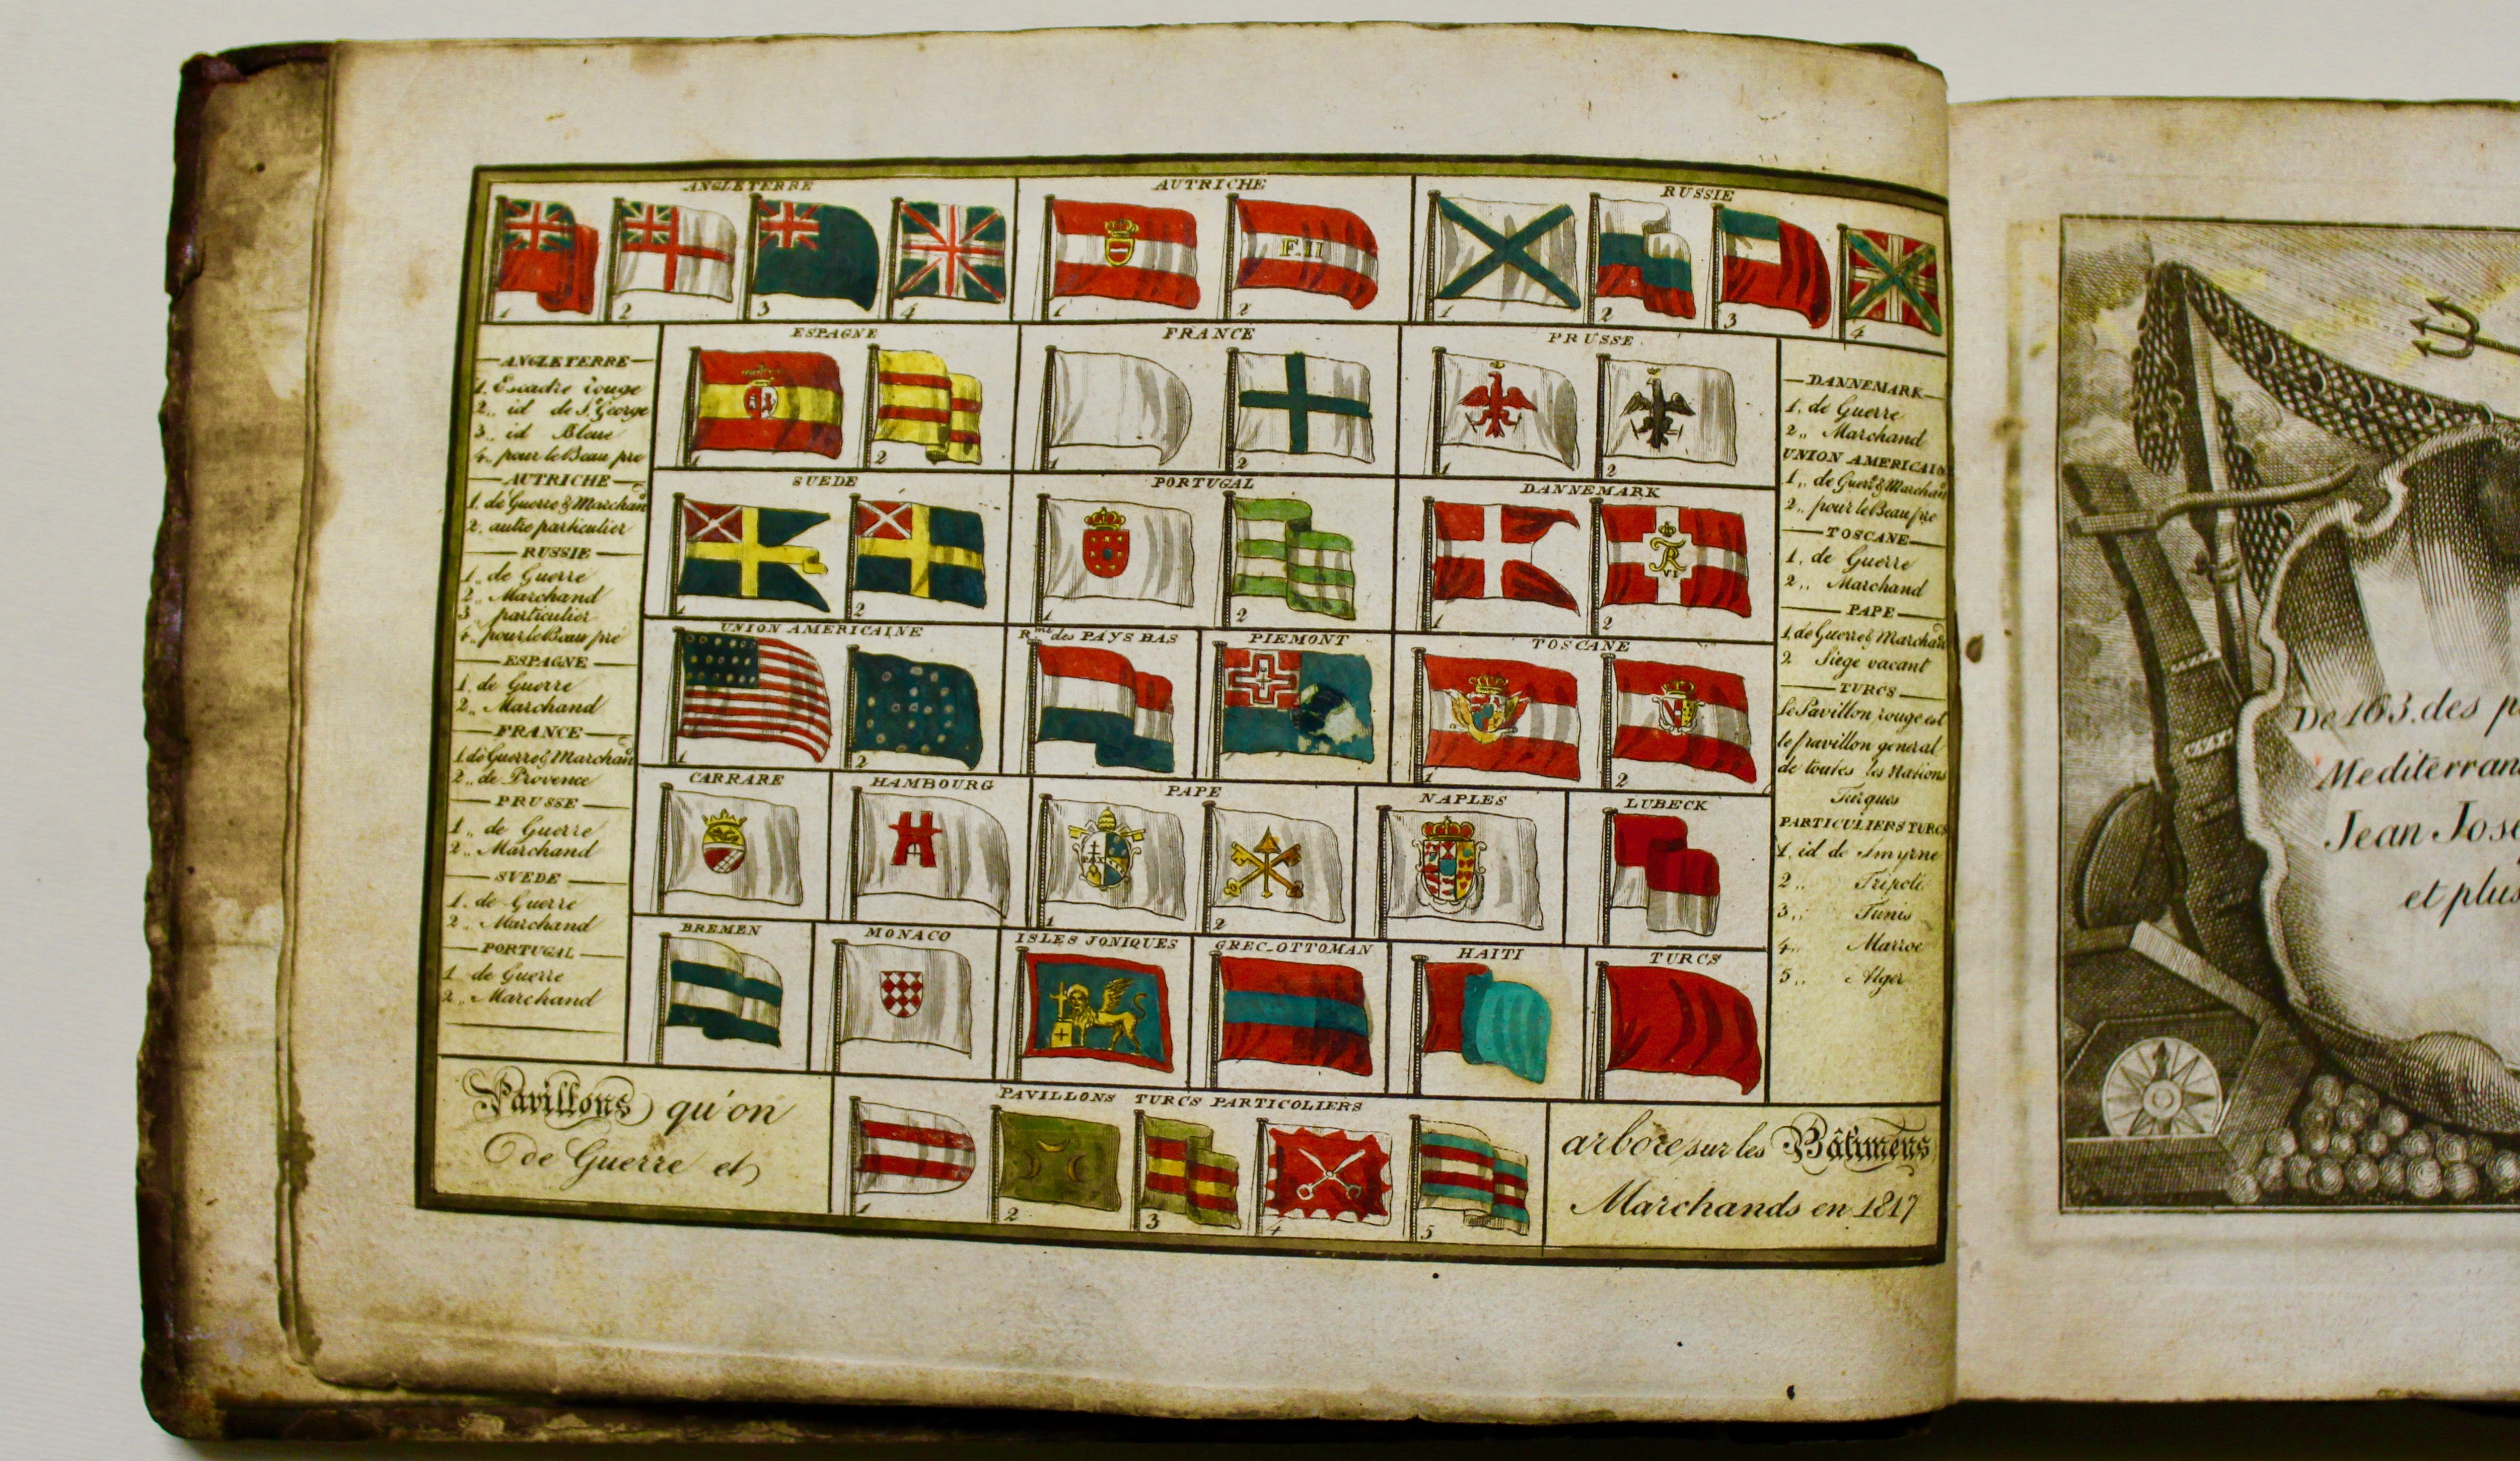 ANGLETERRE
1 2 3 4
AUTRICHE
F.II
1 2
RUSSIE
1 2 3 4
ESPAGNE
1 2
FRANCE
1 2
PRUSSE
1 2
SUEDE
1 2
PORTUGAL
1 2
DANNEMARK
VI
1 2
UNION AMERICAINE
1 2
R.me des PAYS BAS
PIEMONT
TOSCANE
1 2
CARRARE
HAMBOURG
PAPE
PAX
1 2
NAPLES
LUBECK
BREMEN
MONACO
ISLES JONIQUES
GREC-OTTOMAN
HAITI
TURCS
PAVILLONS TURCS PARTICOLIERS
1 2 3 4 5
ANGLETERRE
1. Escadre rouge
2,, id de S.t George
3,, id Bleue
4,, pour le Beau pre
AUTRICHE
1. de Guerre & Marchand
2. autre particulier
RUSSIE
1,, de Guerre
2,, Marchand
3 particulier
4,, pour le Beau pre
ESPAGNE
1. de Guerre
2,, Marchand
FRANCE
1 de Guerre & Marchand
2,, de Provence
PRUSSE
1,, de Guerre
2,, Marchand
SUEDE
1. de Guerre
2,, Marchand
PORTUGAL
1 de Guerre
2,, Marchand
DANNEMARK
1. de Guerre
2,, Marchand
UNION AMERICAINE
1,, de Guere & Marchand
2,, pour le Beau pre
TOSCANE
1. de Guerre
2,, Marchand
PAPE
1. de Guerre & Marchand
2 Siege vacant
TURCS
Le Pavillon rouge est
le pavillon general
de toutes les Nations
Turques
PARTICULIERS TURCS
1. id de Smyrne
2,, Tripoli
3,, Tunis
4,, Marroc
5,, Alger
Pavillons qu'on arbore sur les Bâtimens
de Guerre et Marchands en 1817
De 163. des p
Mediterran
Jean Jos
et plus